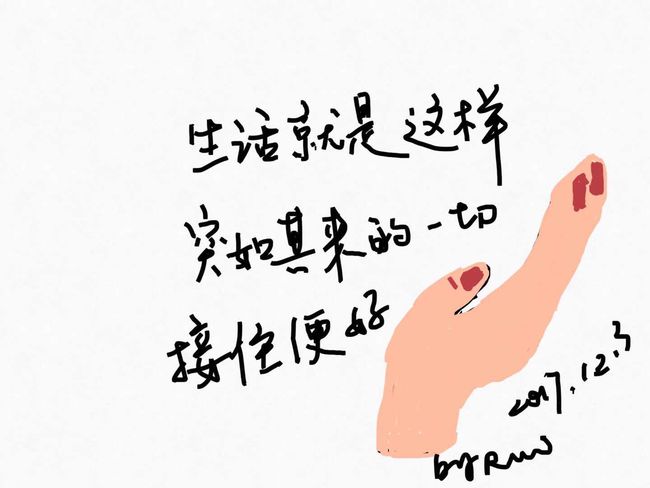 生活就是这样
突如其来的一切
接住便好
2017.12.3
by